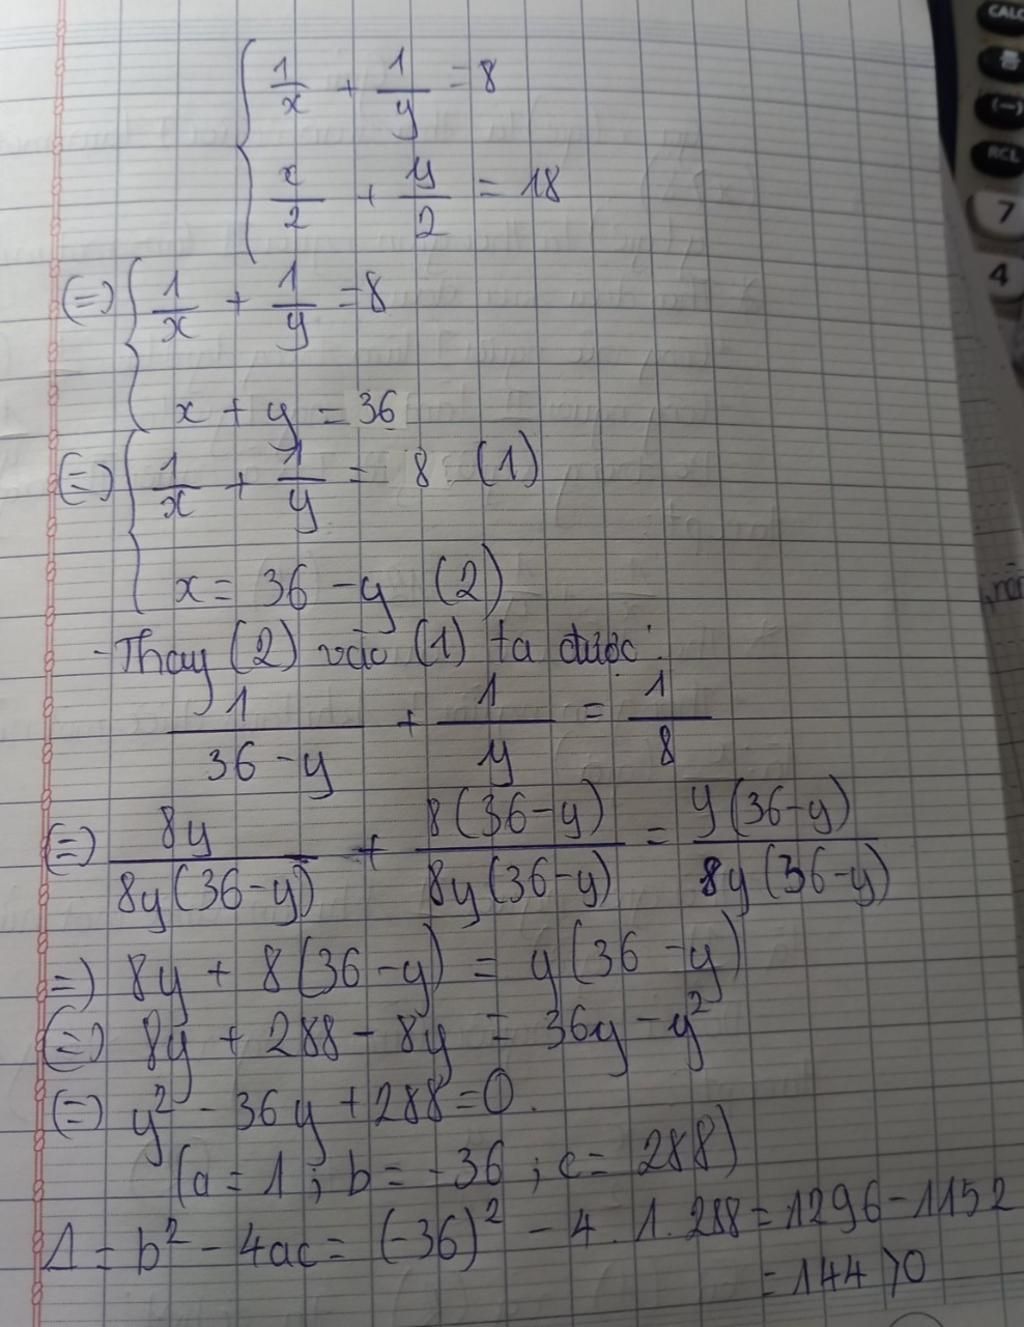 1/x + 1/y = 8
x/2 + y/2 = 18
(=) 1/x + 1/y = 8
x + y = 36
(=) 1/x + 1/y = 8 (1)
x = 36 - y (2)
- Thay (2) vào (1) ta được:
1/(36 - y) + 1/y = 1/8
(=) 8y/(8y(36-y)) + 8(36-y)/(8y(36-y)) = y(36-y)/(8y(36-y))
=) 8y + 8(36-y) = y(36-y)
(=) 8y + 288 - 8y = 36y - y²
(=) y² - 36y + 288 = 0.
(a = 1 ; b = -36 ; c = 288)
Δ = b² - 4ac = (-36)² - 4.1.288 = 1296 - 1152
= 144 > 0
CALC
(−)
RCL
7
4